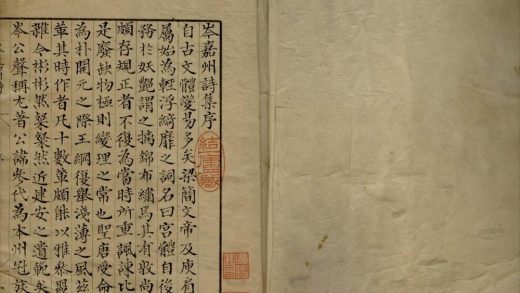 岑嘉州詩集序
自古文體變易多矣梁簡文帝及庾肩
屬始為輕浮綺靡之詞名曰宮體自後
務於妖艷謂之摛錦布繡焉其有敦尚
頗存規正者不復為當時所重諷諫比
是廢缺物極則變理之常也聖唐受命
為朴開元之際王綱復舉淺薄之風茲
革其時作者凡十數輩頗能以雅參麗
雜今彬彬然粲粲然近建安之遺範矣
岑公聲稱尤著公諱參代為本州冠族